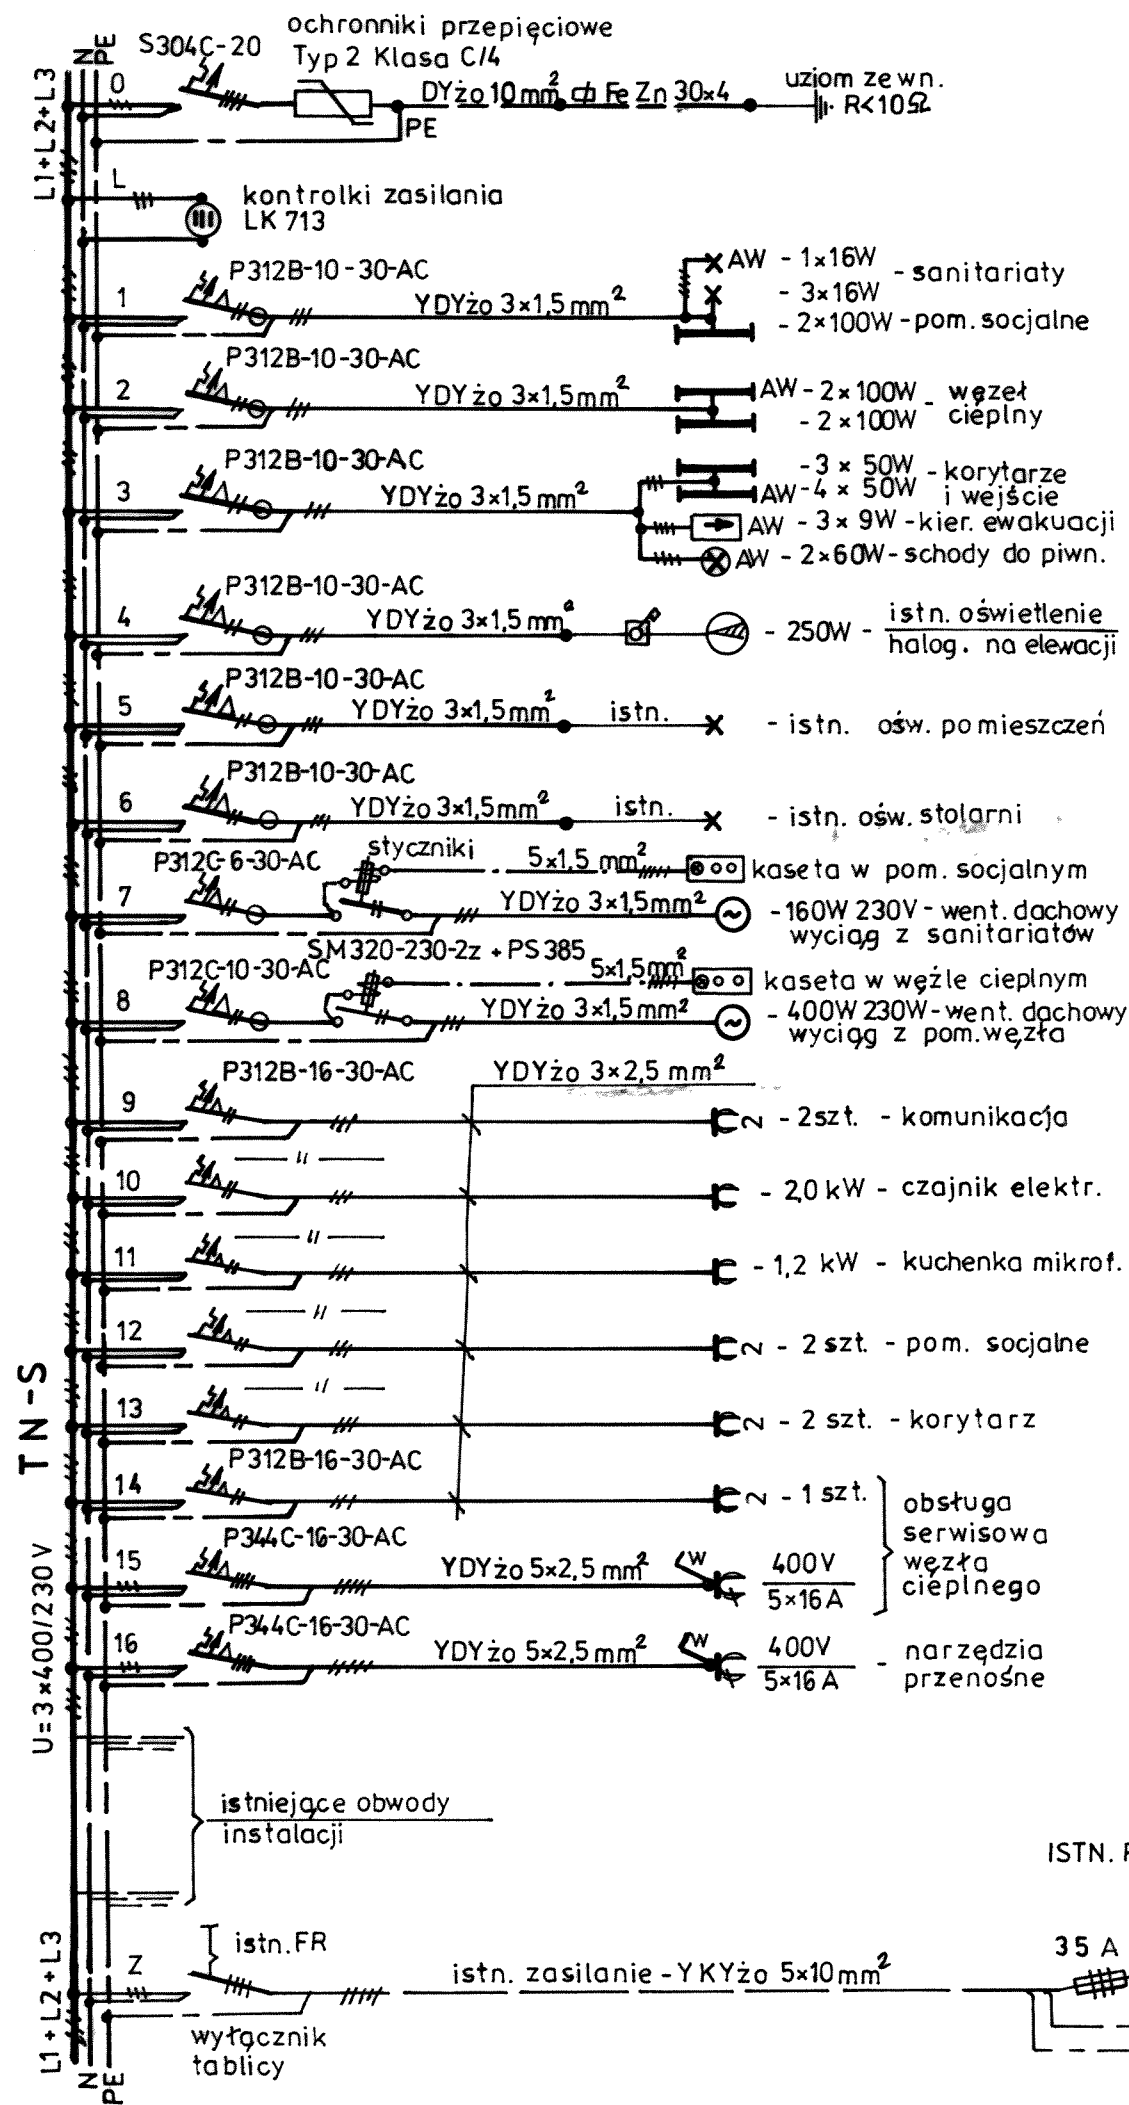 ochronniki przepięciowe
S304C-20 Typ 2 Klasa C/4
N PE
L1+L2+L3
0
DYżo 10mm² ⌀ Fe Zn 30×4
uziom zewn.
R<10Ω
PE
L
kontrolki zasilania
LK 713
P312B-10-30-AC
1
YDYżo 3×1,5mm²
AW - 1×16W
- sanitariaty
- 3×16W
- 2×100W - pom. socjalne
P312B-10-30-AC
2
YDYżo 3×1,5mm²
AW - 2×100W - węzeł
- 2×100W cieplny
P312B-10-30-AC
3
YDYżo 3×1,5 mm²
- 3 × 50W - korytarze
AW - 4 × 50W i wejście
AW - 3× 9W - kier. ewakuacji
AW - 2×60W - schody do piwn.
P312B-10-30-AC
4
YDYżo 3×1,5 mm²
- 250W - istn. oświetlenie
halog. na elewacji
P312B-10-30-AC
5
YDYżo 3×1,5mm²
istn.
- istn. ośw. pomieszczeń
P312B-10-30-AC
6
YDYżo 3×1,5mm²
istn.
- istn. ośw. stolarni
P312C-6-30-AC
styczniki
5×1,5 mm²
kaseta w pom. socjalnym
7
YDYżo 3×1,5mm²
- 160W 230V - went. dachowy
wyciąg z sanitariatów
SM320-230-2z + PS385
P312C-10-30-AC
5×1,5mm²
kaseta w węźle cieplnym
8
YDYżo 3×1,5mm²
- 400W 230W - went. dachowy
wyciąg z pom. węzła
P312B-16-30-AC
YDYżo 3×2,5 mm²
9
2 - 2szt. - komunikacja
— ıı —
10
- 2,0 kW - czajnik elektr.
— ıı —
11
- 1,2 kW - kuchenka mikrof.
— ıı —
12
2 - 2 szt. - pom. socjalne
— ıı —
13
2 - 2 szt. - korytarz
P312B-16-30-AC
14
2 - 1 szt.
obsługa
serwisowa
węzła
cieplnego
P344C-16-30-AC
15
YDYżo 5×2,5 mm²
W
400V
5×16 A
P344C-16-30-AC
16
YDYżo 5×2,5 mm²
W
400V
5×16 A
- narzędzia
przenośne
TN-S
U=3×400/230V
istniejące obwody
instalacji
ISTN.
L1 + L2 + L3
Z
istn. FR
istn. zasilanie - YKYżo 5×10mm²
35 A
wyłącznik
tablicy
N PE